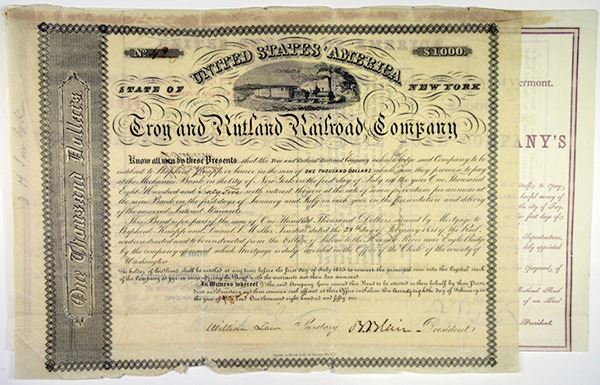 No. 42
UNITED STATES AMERICA
$1000
STATE OF NEW YORK
One Thousand Dollars
Troy and Rutland Railroad Company
Know all men by these Presents, that the Troy and Rutland Railroad Company acknowledge said Company to be
indebted to Shepherd Knapp or bearer in the sum of ONE THOUSAND DOLLARS which sum they promise to pay
at the Mechanics Bank, in the City of New York, on the first day of July One Thousand
Eight Hundred and Sixty Five with interest thereon at the rate of seven per cent per annum at
the same Bank on the first days of January and July in each year on the presentation and delivery
of the annexed Interest Warrants.
This Bond is for part of the sum of One Hundred Thousand Dollars secured by Mortgage to
Shepherd Knapp and Samuel P. Miller, Trustees, dated the 28th day of February 1851 of the Rail
road constructed and to be constructed from the Village of Salem to the Hoosick River near Eagle Bridge
by the company aforesaid which Mortgage is duly recorded in the office of the Clerk of the county of
Washington.
The holder of this Bond shall be entitled at any time before the first day of July 1855 to convert the principal sum into the Capital stock
of the Company at par on surrendering this Bond with the warrants not then due annexed.
In Witness whereof, the said Company have caused this Bond to be executed in their behalf by their Presi-
dent and Secretary and their common seal affixed at their Office in Salem this twenty eighth day of February in
the year of our Lord One thousand eight hundred and fifty one.
William Law Secretary
President
Vermont.
NY'S
to Pay,
lawful money of
the day of
first days of
duly appointed
Payment, of
Rutland Rail
President.